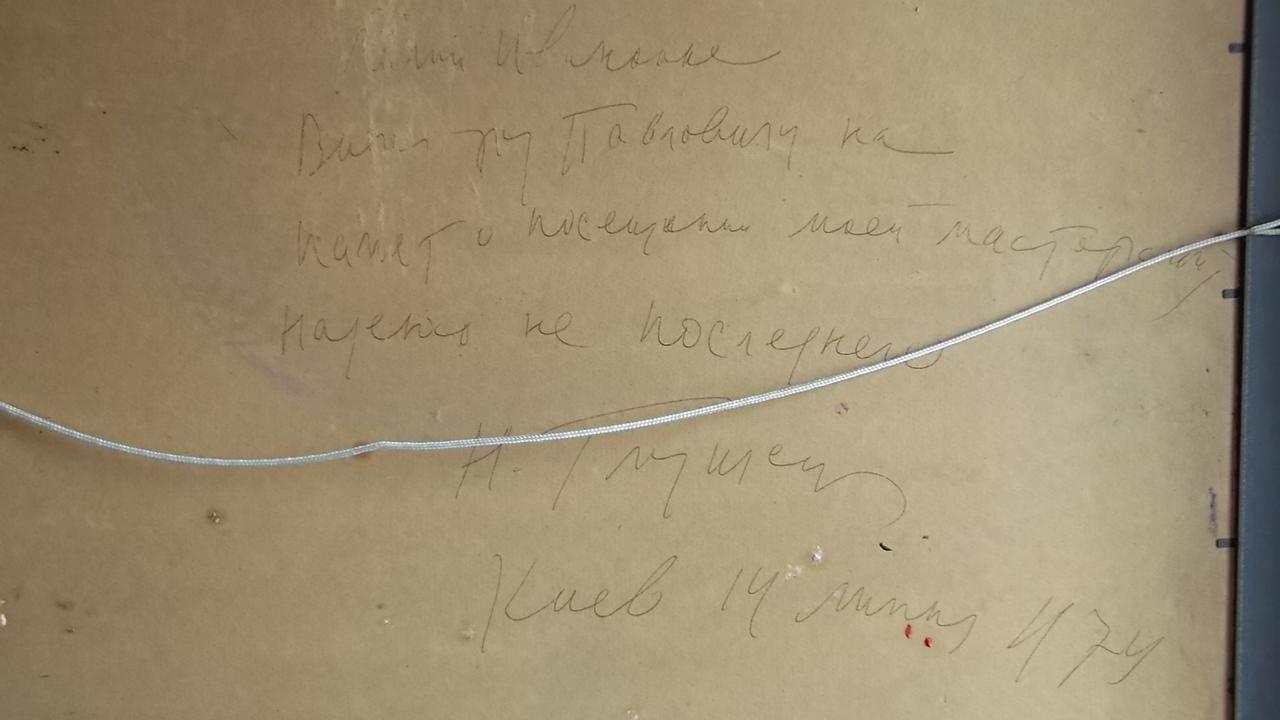 Ивановне
Виктору Павловичу на
память о посещении моей мастерской,
надеюсь не последнего
Н. Глущенко
Киев 14 1974